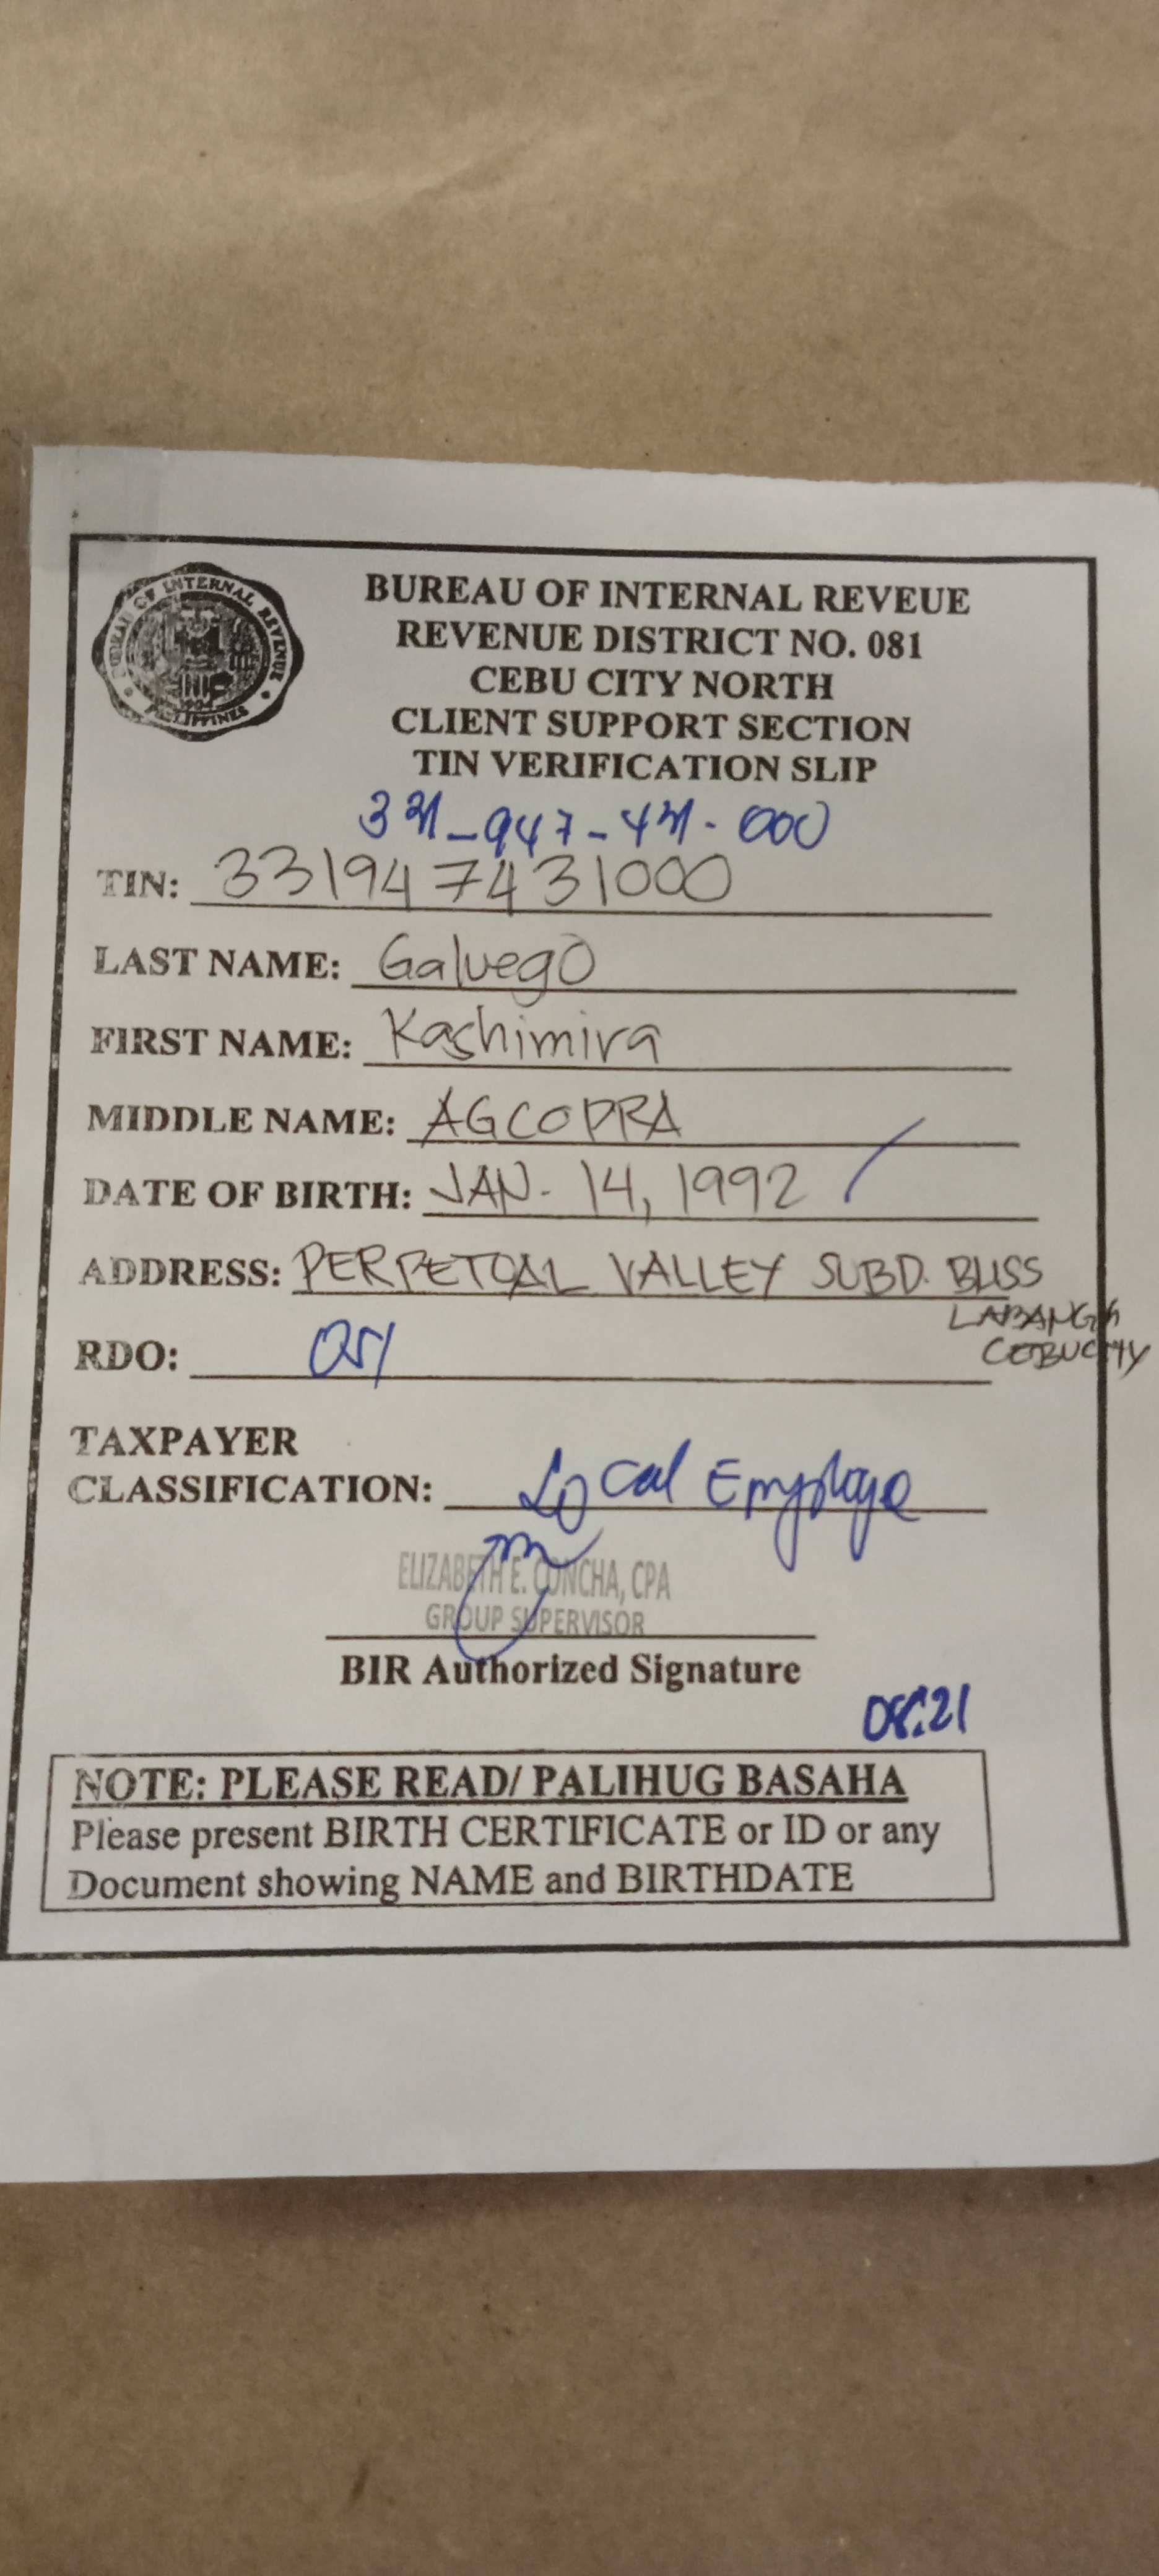 BUREAU OF INTERNAL REVENUE
PHILIPPINES
1904
BUREAU OF INTERNAL REVEUE
REVENUE DISTRICT NO. 081
CEBU CITY NORTH
CLIENT SUPPORT SECTION
TIN VERIFICATION SLIP
331-947-431-000
TIN: 331947431000
LAST NAME: Galvego
FIRST NAME: Kashimira
MIDDLE NAME: AGCOPRA
DATE OF BIRTH: JAN. 14, 1992
ADDRESS: PERPETUAL VALLEY SUBD. BLISS
LABANGON
CEBU CITY
RDO: 081
TAXPAYER
CLASSIFICATION: Local Employee
ELIZABETH E. CONCHA, CPA
GROUP SUPERVISOR
BIR Authorized Signature
NOTE: PLEASE READ/ PALIHUG BASAHA
Please present BIRTH CERTIFICATE or ID or any
Document showing NAME and BIRTHDATE